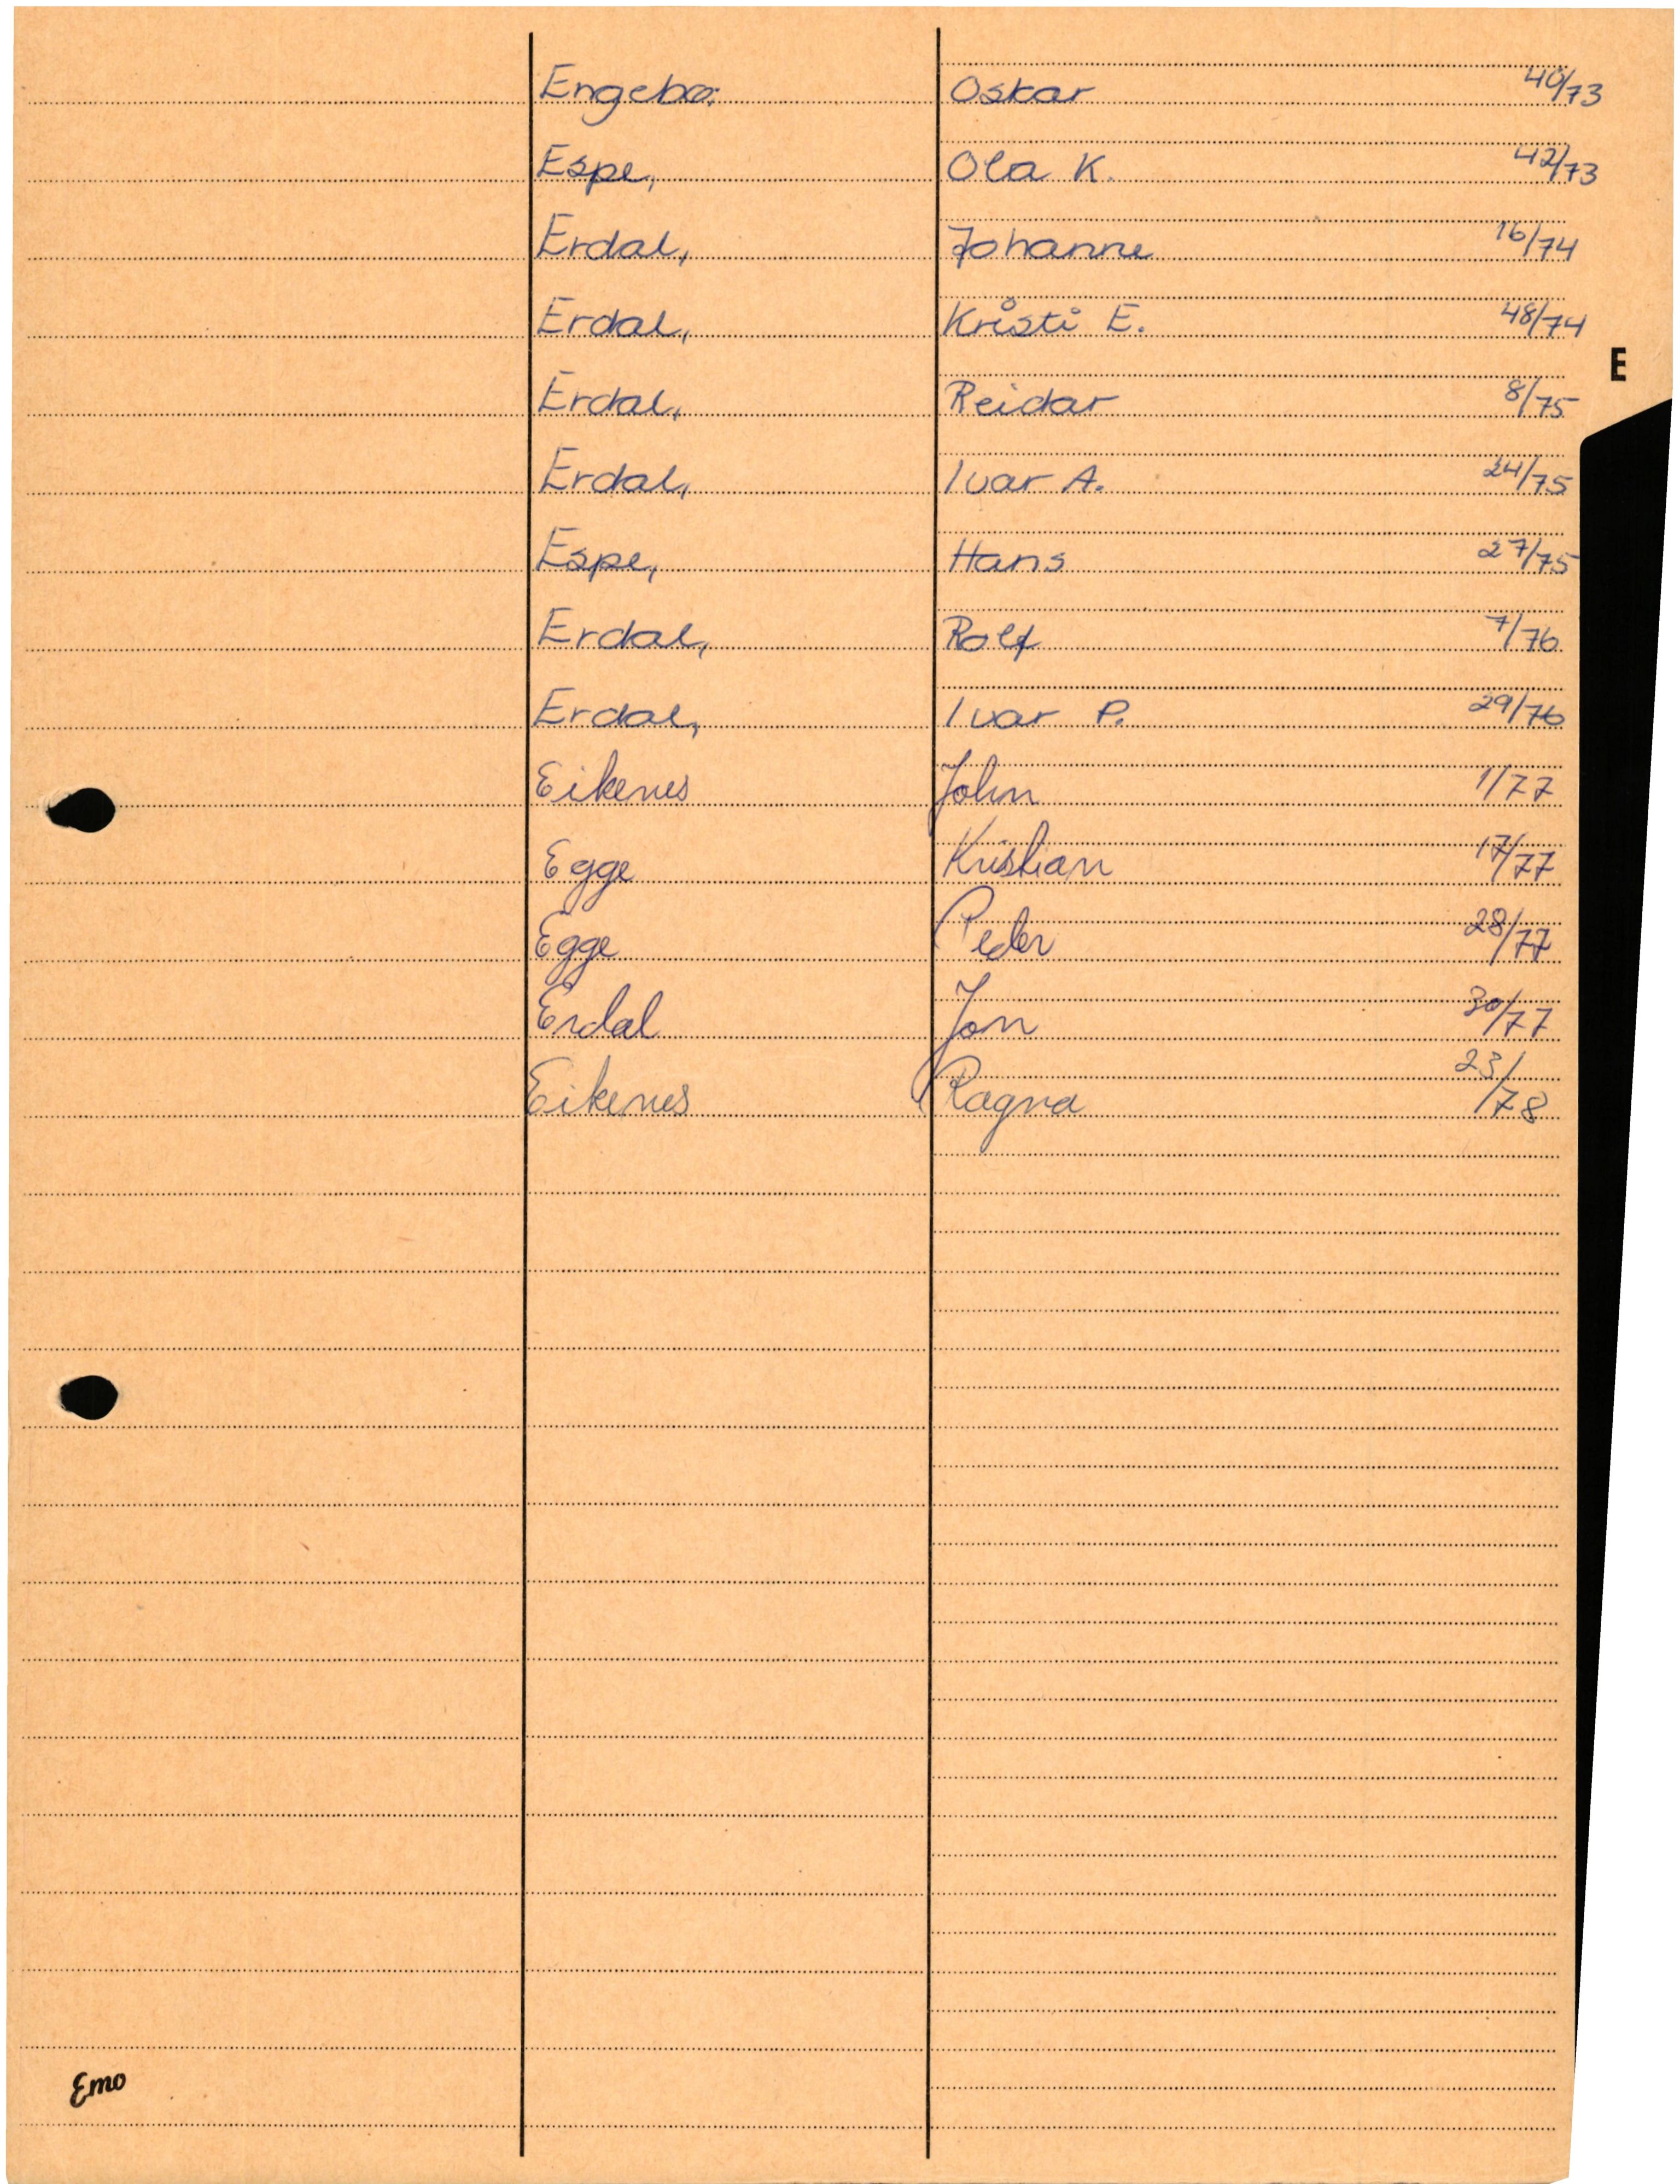 Engebø, Oskar 40/73
Espe, Ola K. 42/73
Erdal, Johanne 16/74
Erdal, Kristi E. 48/74
E
Erdal, Reidar 8/75
Erdal, Ivar A. 24/75
Espe, Hans 27/75
Erdal, Rolf 7/76
Erdal, Ivar P. 29/76
Eikenes John 1/77
Egge Kristian 17/77
Egge Peder 28/77
Erdal Jon 30/77
Eikenes Ragna 23/78
Emo